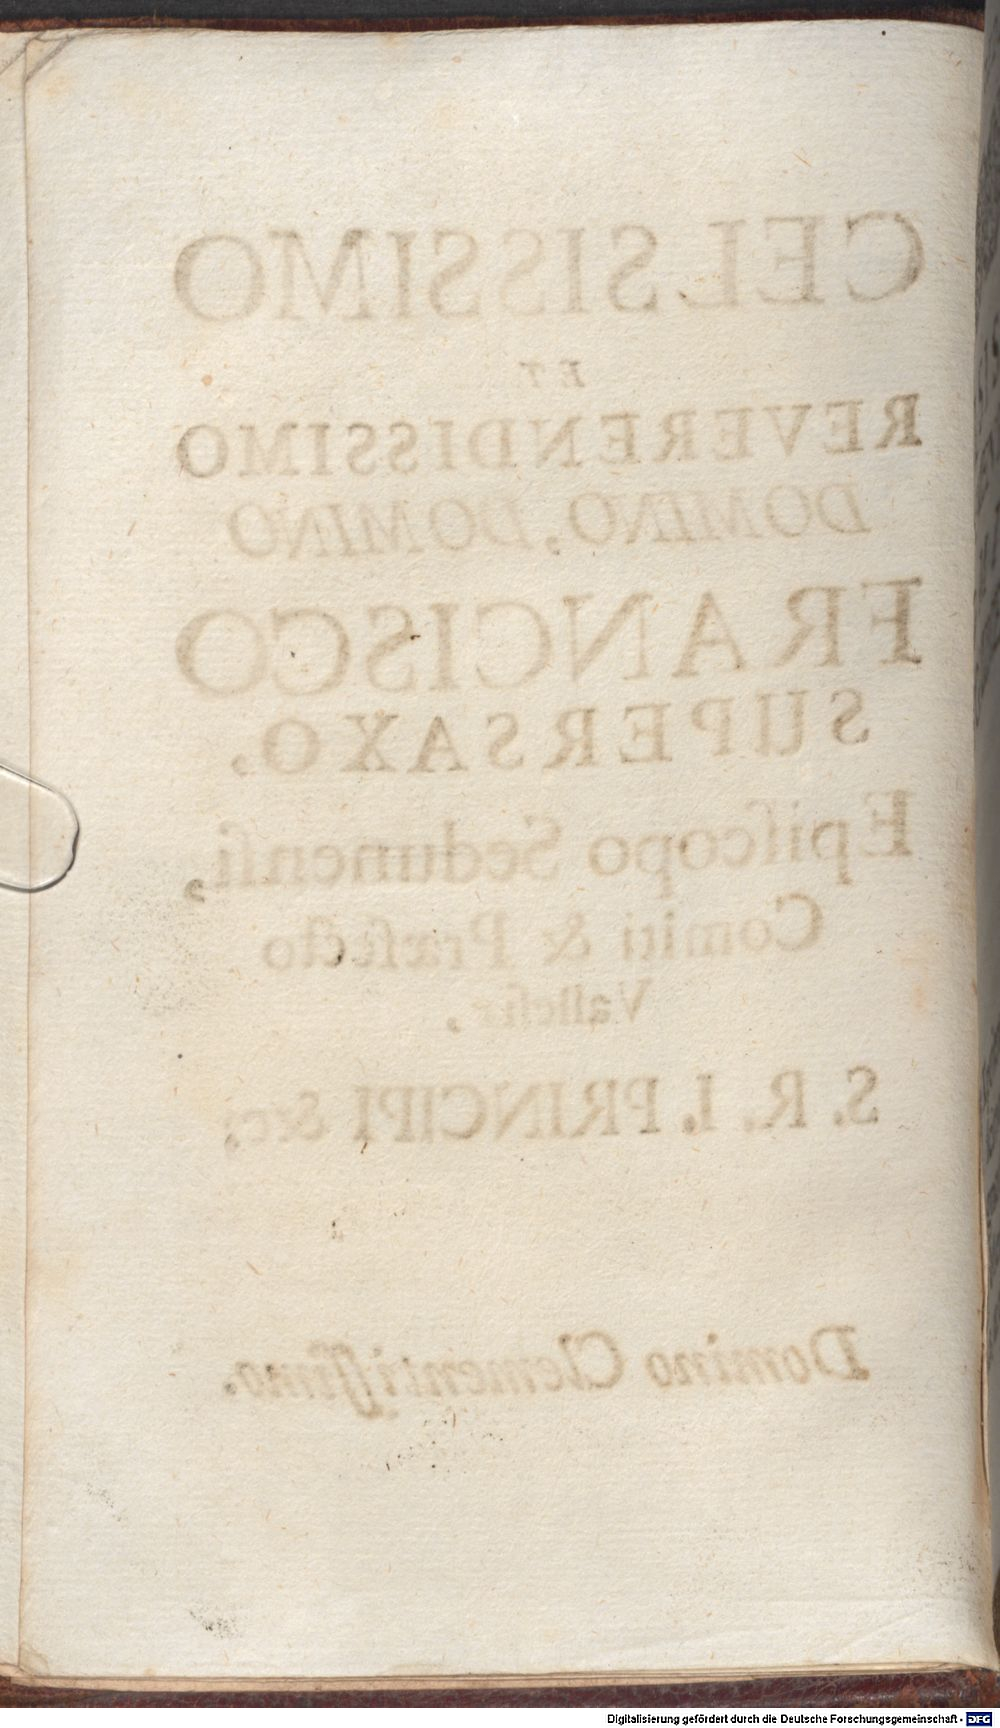 CELSISSIMO
ET
REVERENDISSIMO
DOMINO, DOMINO
FRANCISCO
SUPERSAXO,
Epiſcopo Sedunenſi,
Comiti & Præfecto
Valleſiæ,
S. R. I. PRINCIPI &c.
Domino Clementiſſimo.
Digitalisierung gefördert durch die Deutsche Forschungsgemeinschaft - DFG